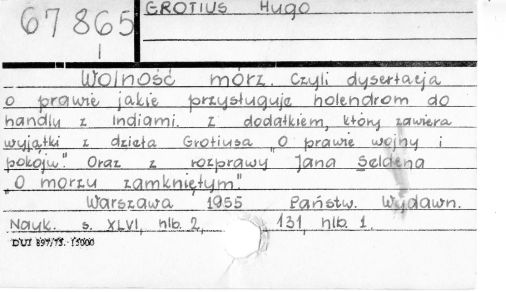 67865
I
GROTIUS Hugo
Wolność mórz. Czyli dysertacja
o prawie jakie przysługuje holendrom do
handlu z Indiami. Z dodatkiem, który zawiera
wyjątki z dzieła Grotiusa „O prawie wojny i
pokoju". Oraz z rozprawy Jana Seldena
„O morzu zamkniętym."
Warszawa 1955 Państw. Wydawn.
Nauk. s. XLVI, nlb. 2, 131, nlb. 1.
DUJ 897/73. 15000